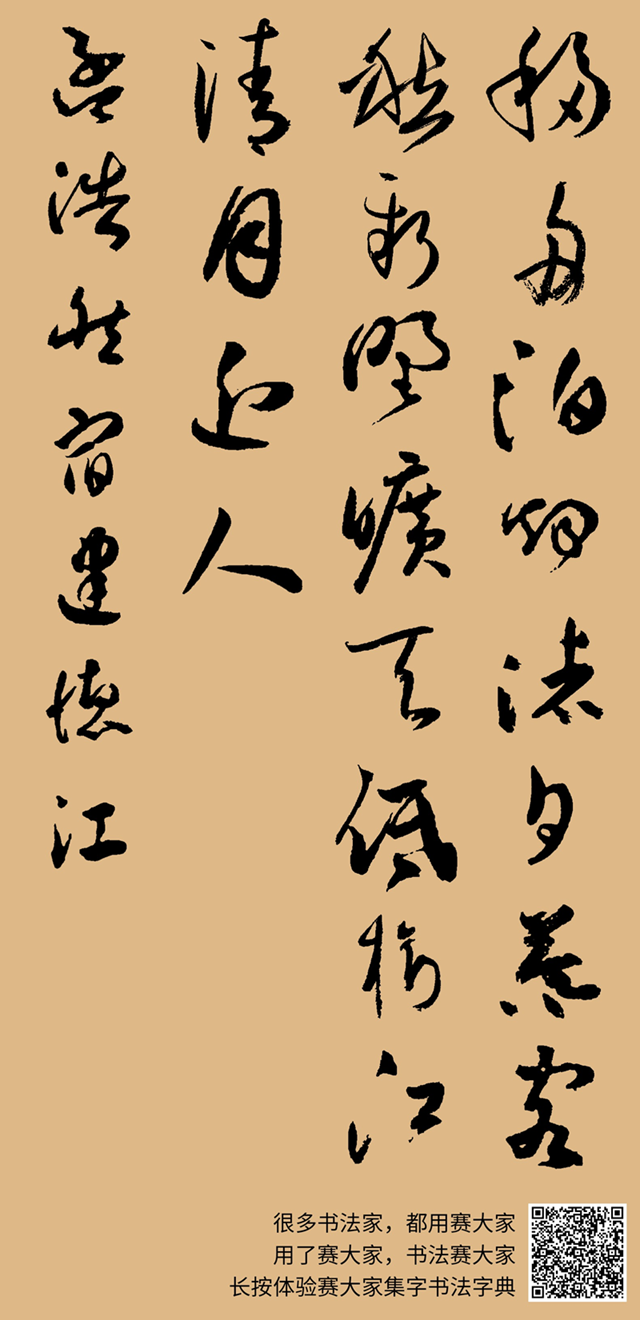 移舟泊烟渚日暮客
愁新野曠天低樹江
清月近人
孟浩然宿建德江
很多书法家，都用赛大家
用了赛大家，书法赛大家
长按体验赛大家集字书法字典